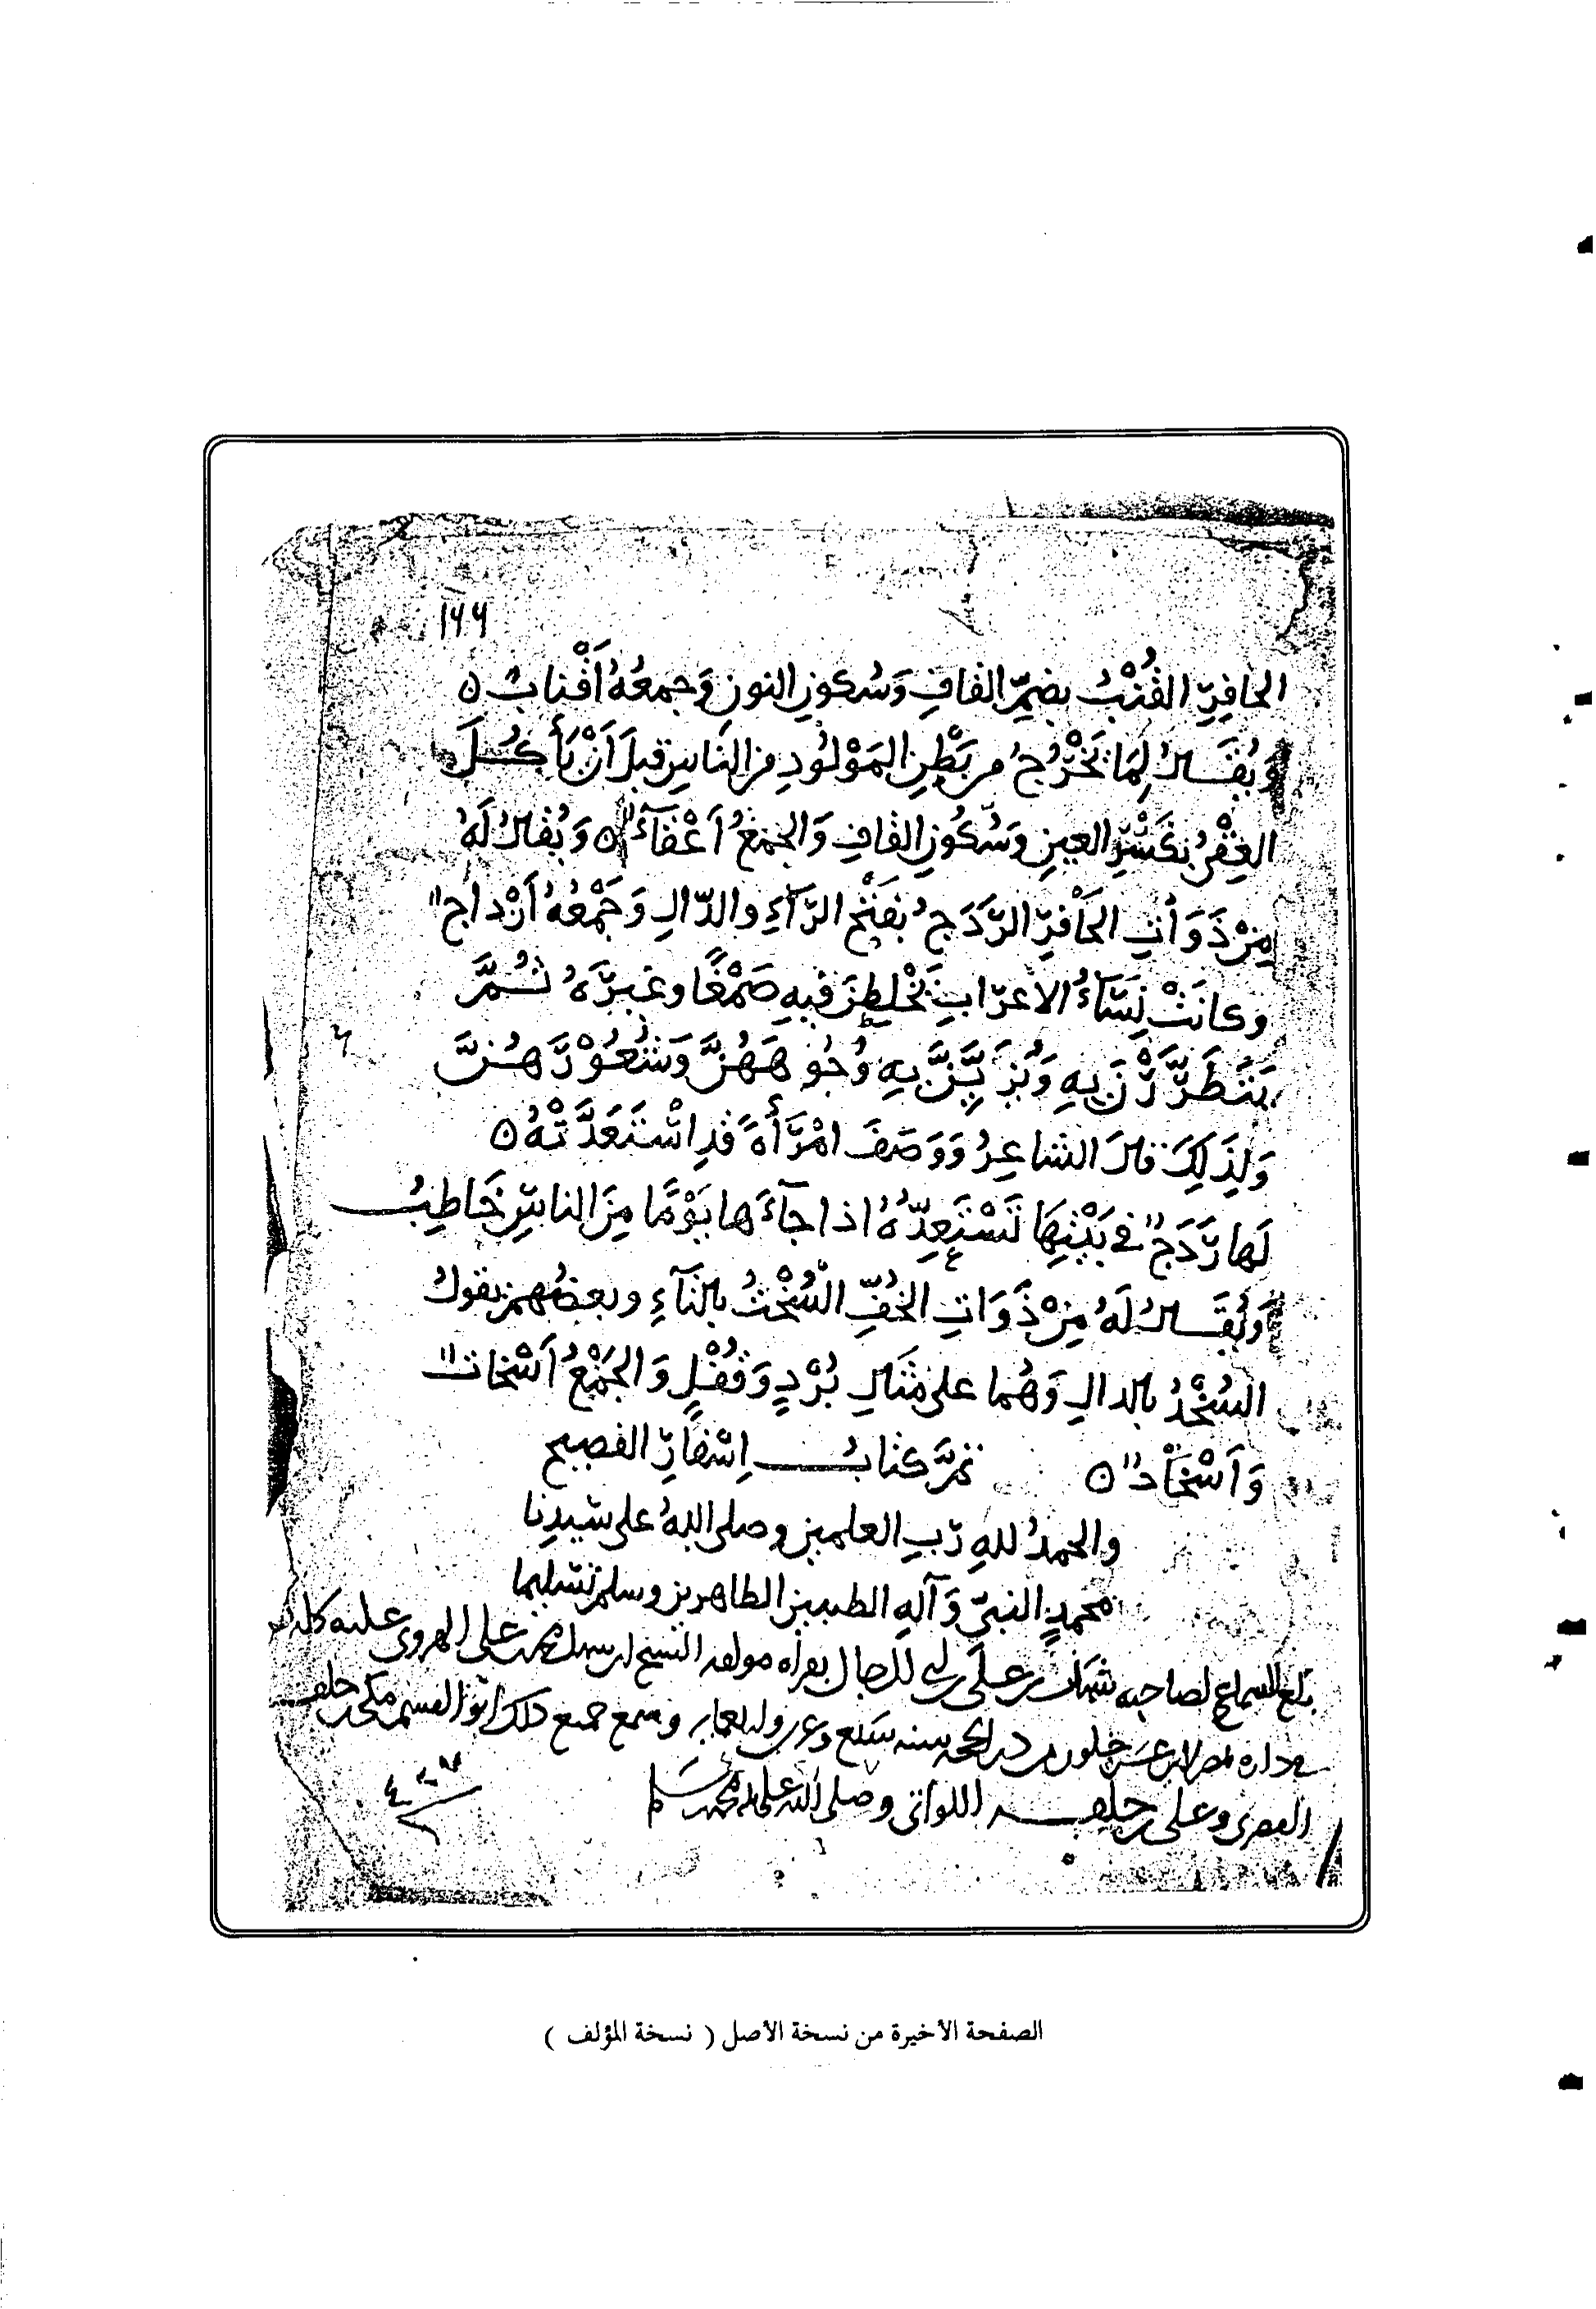 ١٦٩
الحافِرِ القُنْبُ بضمّ القافِ وَسُكونِ النونِ وَجمعُهُ أَقْنابٌ ه
وَيُقَالُ لِمَا يَخْرُجُ من بَطْنِ المَوْلُودِ من الناسِ قبلَ أَنْ يَأكُلَ
العِقْيُ بكَسْرِ العينِ وَسُكُونِ القافِ وَالجمْعُ أَعْقَآءٌ ه وَيُقالُ لَهُ
مِنْ ذَوَاتِ الحَافِرِ الرَّدَجُ بفَتْحِ الرّآءِ والدّالِ وَجَمْعُهُ أَرْداجٌ
وكانَتْ نِسَآءُ الأعرَابِ يَخْلِطنَ فيهِ صَمْغًا وغيرَهُ ثُمَّ
يَتَطَرَّرْنَ بِهِ وَيُزَيِّنَّ بِهِ وُجُوهَهُنَّ وَشُعُوْرَهُنَّ
وَلِذَلِكَ قالَ الشاعِرُ وَوَصَفَ امْرَأَةً قَدِ اسْتَعَدَّتْهُ ه
لَها رَدَجٌ في بَيْتِهَا تَسْتَعِدُّهُ اذا جآءَها يَوْمًا مِنَ الناسِ خَاطِبُ
وَيُقَالُ لَهُ مِنْ ذَوَاتِ الخُفِّ السُّخْتُ بالتآءِ وبعضُهم يقولُ
السُّخْدُ بالدالِ وَهُما على مثالِ بُرْدٍ وَقُفْلٍ وَالجَمْعُ أَسْخاتٌ
وَأَسْخَادٌ ه تمَّ كتابُ إسْفارِ الفصيح
والحمدُ للهِ رَبِّ العلمين وصلى اللهُ على سَيدِنا
محمدٍ النبيّ وَآلِهِ الطيبين الطاهرين وسلم تسليما
بلغ السماع لصاحبه علي بقراه مولفه الشيخ ابي سهل محمد بن علي الهروي عليه كله
في داره بمصر لاربع عشره خلون من ذي الحجه سنه سبع وعشرين واربعمايه وسمع جميع ذلك ابو القسم مكي بن خلف
البصري وعلي بن خليفه اللواتي وصلى الله على محمد وسلم
الصفحة الأخيرة من نسخة الأصل ( نسخة المؤلف )